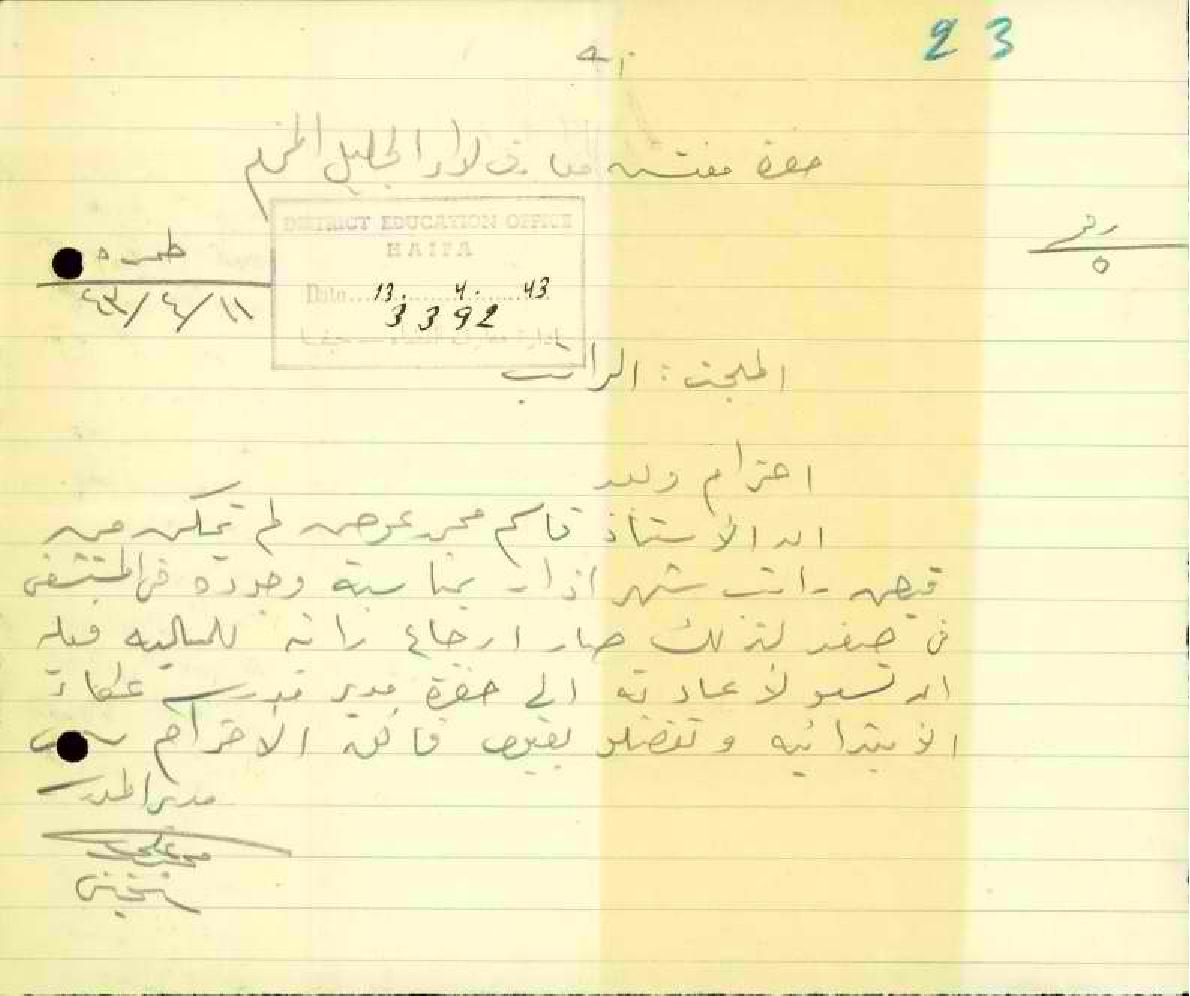 23
حضرة مفتش معارف لواء الجليل المحترم
DISTRICT EDUCATION OFFICE
HAIFA
Date... 13. 4. 43
3392
إدارة معارف القضاء — حيفا
رقم
٥
طمره
٤٣/٤/١١
المبحث: الراتب
احترام وبعد
ان الأستاذ قاسم محمد عوض لم يتمكن من
قبض راتب شهر اذار بمناسبة وجوده في المستشفى
في صفد لذلك صار ارجاع راتبه للمالية
الى حضرة مدير مدرسة عكا
الابتدائيه وتفضلو بقبول فائق الأحترام
مدير المدرسة